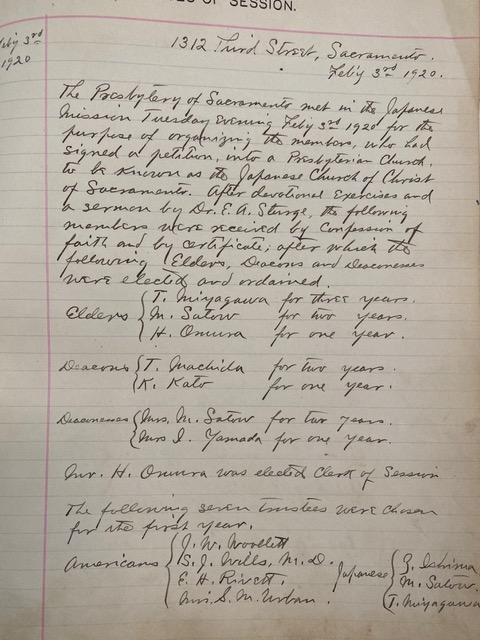 OF SESSION.
Feb'y 3rd
1920
1312 Third Street, Sacramento.
Feb'y 3rd 1920.
The Presbytery of Sacramento met in the Japanese
Mission Tuesday evening Feb'y 3rd 1920 for the
purpose of organizing the members, who had
signed a petition, into a Presbyterian Church,
to be known as the Japanese Church of Christ
of Sacramento. After devotional Exercises and
a sermon by Dr. E. A. Sturge, the following
members were received by Confession of
faith and by certificate; after which the
following Elders, Deacons and Deaconesses
were elected and ordained.
Elders { T. Miyagawa for three years.
M. Satow for two years.
H. Omura for one year.
Deacons { T. Machida for two years.
K. Kato for one year.
Deaconesses { Mrs. M. Satow for two years.
Mrs I. Yamada for one year.
Mr. H. Omura was elected Clerk of Session
The following seven trustees were chosen
for the first year.
Americans { J. W. Woollett
S. J. Wells, M.D.
E. H. Rivett.
Mrs. S. M. Urban.
Japanese { Z. Ishima
M. Satow.
T. Miyagawa